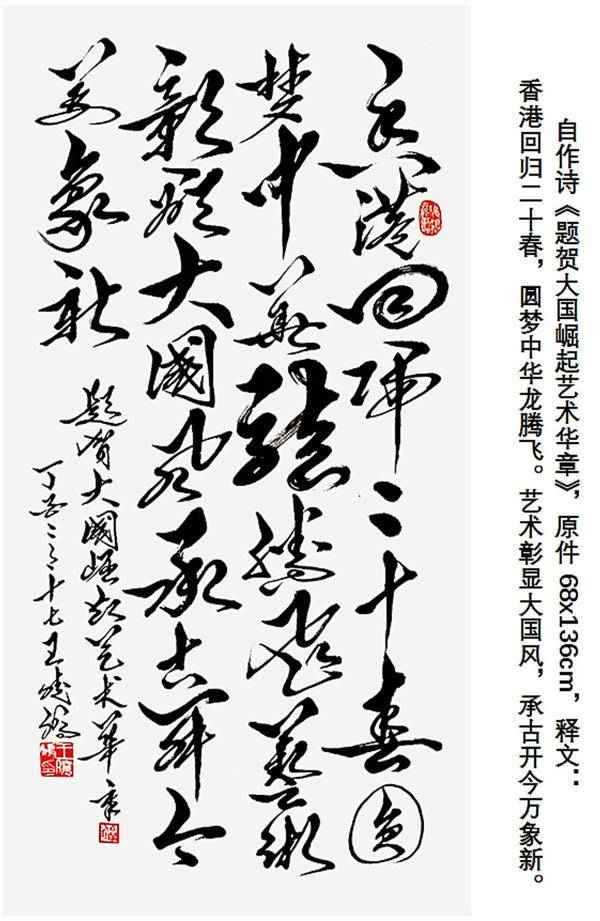 自作诗《题贺大国崛起艺术华章》，原件 68x136cm，释文：
香港回归二十春，圆梦中华龙腾飞。艺术彰显大国风，承古开今万象新。
香港回歸二十春圓
梦中華龍騰飛藝術
彰顯大國风承古開今
萬象新
题贺大國崛起艺术華章
丁酉二〇十七王